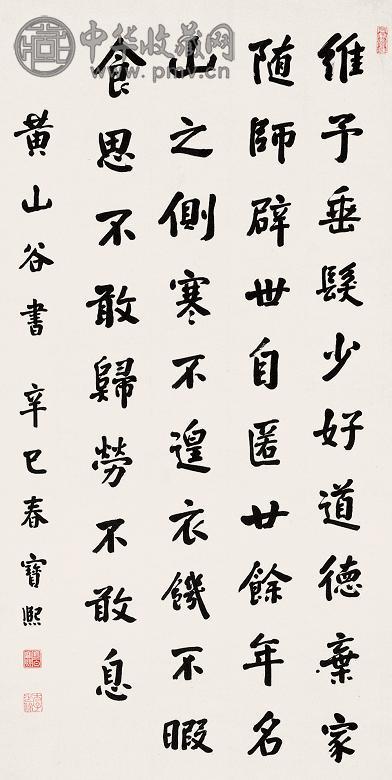 維予垂髮少好道德棄家
随師辟世自匿廿餘年名
山之側寒不遑衣饑不暇
食思不敢歸勞不敢息
黄山谷書 辛巳春寶熙
中华收藏网
www.pmv.cn